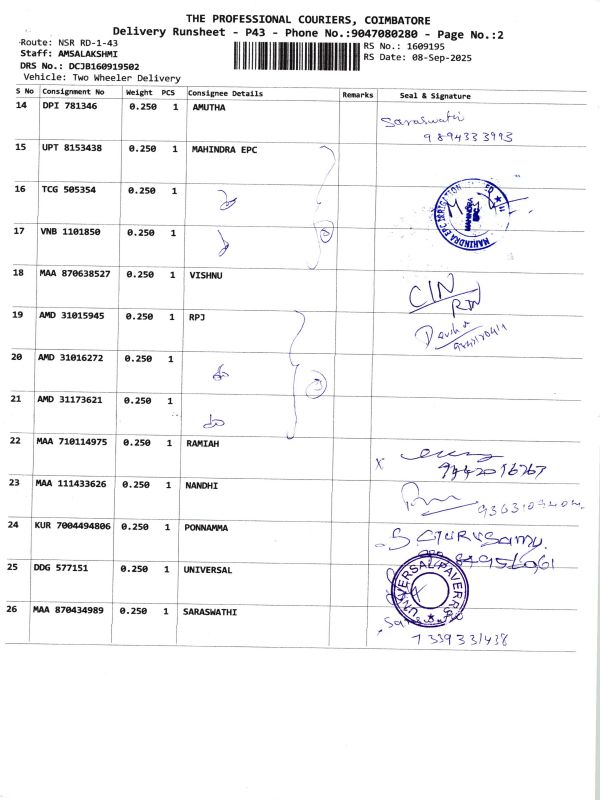 THE PROFESSIONAL COURIERS, COIMBATORE
Delivery Runsheet - P43 - Phone No.:9047080280 - Page No.:2
Route: NSR RD-1-43
Staff: AMSALAKSHMI
DRS No.: DCJB160919502
Vehicle: Two Wheeler Delivery
RS No.: 1609195
RS Date: 08-Sep-2025
S No Consignment No Weight PCS Consignee Details Remarks Seal & Signature
14 DPI 781346 0.250 1 AMUTHA
Saraswathi
9894333993
15 UPT 8153438 0.250 1 MAHINDRA EPC
16 TCG 505354 0.250 1
MAHINDRA EPC
17 VNB 1101850 0.250 1
18 MAA 870638527 0.250 1 VISHNU
19 AMD 31015945 0.250 1 RPJ
20 AMD 31016272 0.250 1
21 AMD 31173621 0.250 1
22 MAA 710114975 0.250 1 RAMIAH
23 MAA 111433626 0.250 1 NANDHI
24 KUR 7004494806 0.250 1 PONNAMMA
25 DDG 577151 0.250 1 UNIVERSAL
UNIVERSAL PAVERR
26 MAA 870434989 0.250 1 SARASWATHI
7339331438